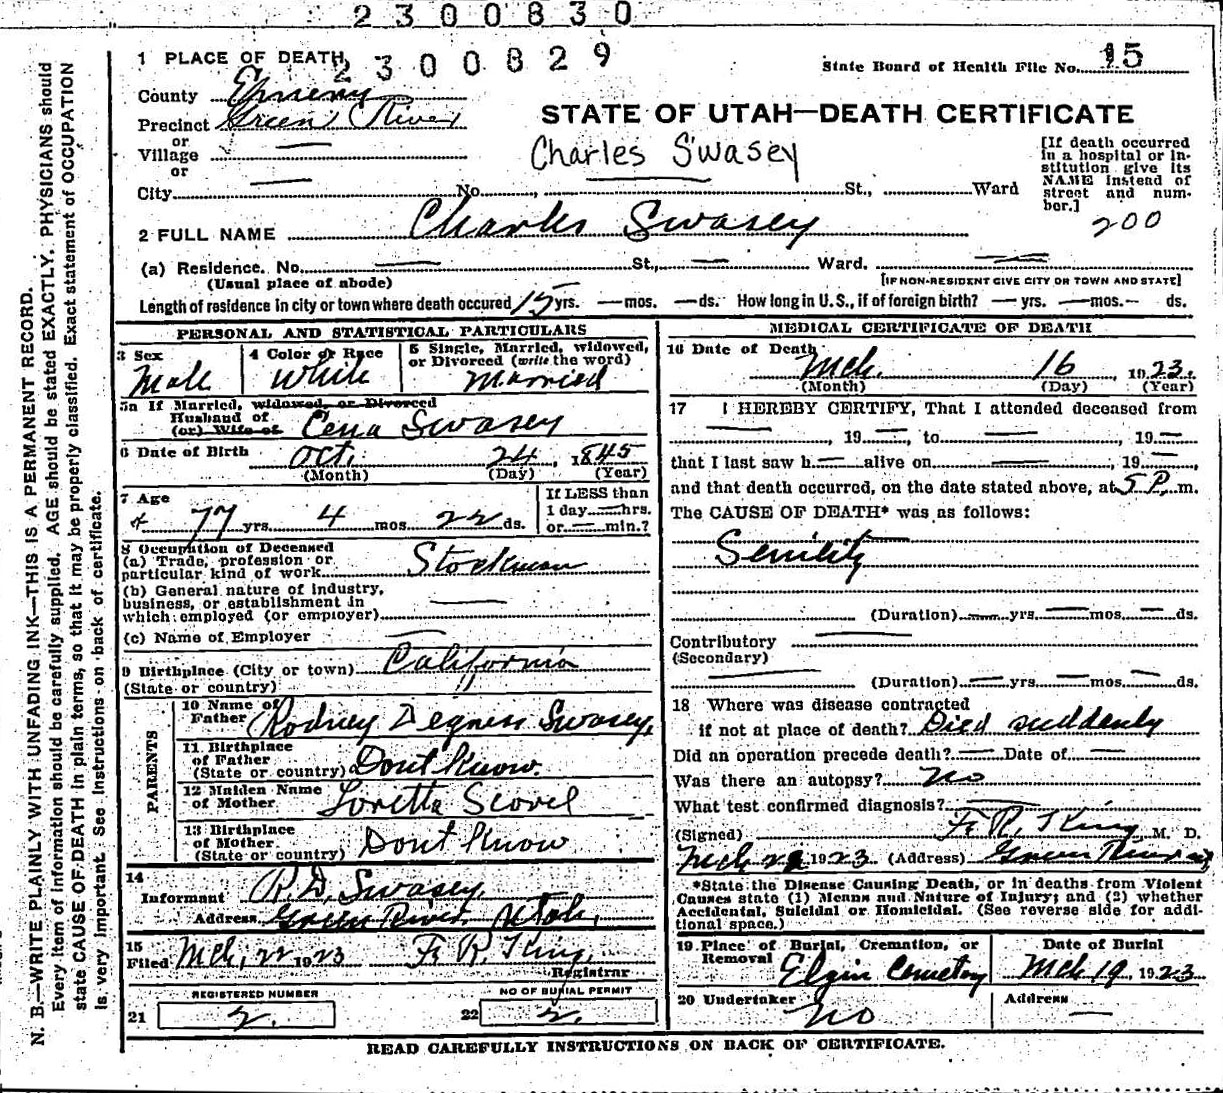 2300830
1 PLACE OF DEATH
2300829
State Board of Health File No. 15
County Emery
Precinct Green River
or
Village —
or
City — No. St., Ward
STATE OF UTAH—DEATH CERTIFICATE
Charles Swasey
[If death occurred in a hospital or institution give its NAME instead of street and number.]
200
2 FULL NAME Charles Swasey
(a) Residence. No. — St., — Ward. —
(Usual place of abode)
[IF NON-RESIDENT GIVE CITY OR TOWN AND STATE]
Length of residence in city or town where death occured 15 yrs. — mos. — ds. How long in U. S., if of foreign birth? — yrs. — mos. — ds.
PERSONAL AND STATISTICAL PARTICULARS
3 Sex
Male
4 Color or Race
White
5 Single, Married, widowed, or Divorced (write the word)
Married
5a If Married, widowed, or Divorced
Husband of
(or) Wife of Cena Swasey
6 Date of Birth Oct. 24, 1845
(Month) (Day) (Year)
7 Age
77 yrs. 4 mos. 22 ds.
If LESS than
1 day — hrs.
or — min.?
8 Occupation of Deceased
(a) Trade, profession or
particular kind of work Stockman
(b) General nature of industry,
business, or establishment in
which employed (or employer) —
(c) Name of Employer —
9 Birthplace (City or town) California
(State or country) "
PARENTS
10 Name of
Father Rodney Degness Swasey,
11 Birthplace
of Father
(State or country) Dont Know.
12 Maiden Name
of Mother Loretta Scovel
13 Birthplace
of Mother
(State or country) Dont Know
14
Informant R. D. Swasey,
Address Green River, Utah,
15
Filed Mch, 22 1923 F. R. King,
Registrar
REGISTERED NUMBER
21 2.
NO OF BURIAL PERMIT
22 2.
MEDICAL CERTIFICATE OF DEATH
16 Date of Death Mch. 16 1923.
(Month) (Day) (Year)
17 I HEREBY CERTIFY, That I attended deceased from
—, 19 —, to —, 19 —
that I last saw h — alive on —, 19 —,
and that death occurred, on the date stated above, at 5 P. m.
The CAUSE OF DEATH* was as follows:
Senility
(Duration) — yrs. — mos. — ds.
Contributory —
(Secondary)
— (Duration) — yrs. — mos. — ds.
18 Where was disease contracted
if not at place of death? Died suddenly
Did an operation precede death? — Date of —
Was there an autopsy? No
What test confirmed diagnosis? —
(Signed) F. R. King M. D.
Mch 1923 (Address) Green River
*State the Disease Causing Death, or in deaths from Violent
Causes state (1) Means and Nature of Injury; and (2) whether
Accidental, Suicidal or Homicidal. (See reverse side for additional space.)
19 Place of Burial, Cremation, or
Removal
Elgin Cemetery
Date of Burial
Mch 19, 1923
20 Undertaker
No
Address
—
READ CAREFULLY INSTRUCTIONS ON BACK OF CERTIFICATE.
N. B.—WRITE PLAINLY WITH UNFADING INK—THIS IS A PERMANENT RECORD.
Every item of information should be carefully supplied. AGE should be stated EXACTLY. PHYSICIANS should
state CAUSE OF DEATH in plain terms, so that it may be properly classified. Exact statement of OCCUPATION
is very important. See Instructions on back of certificate.